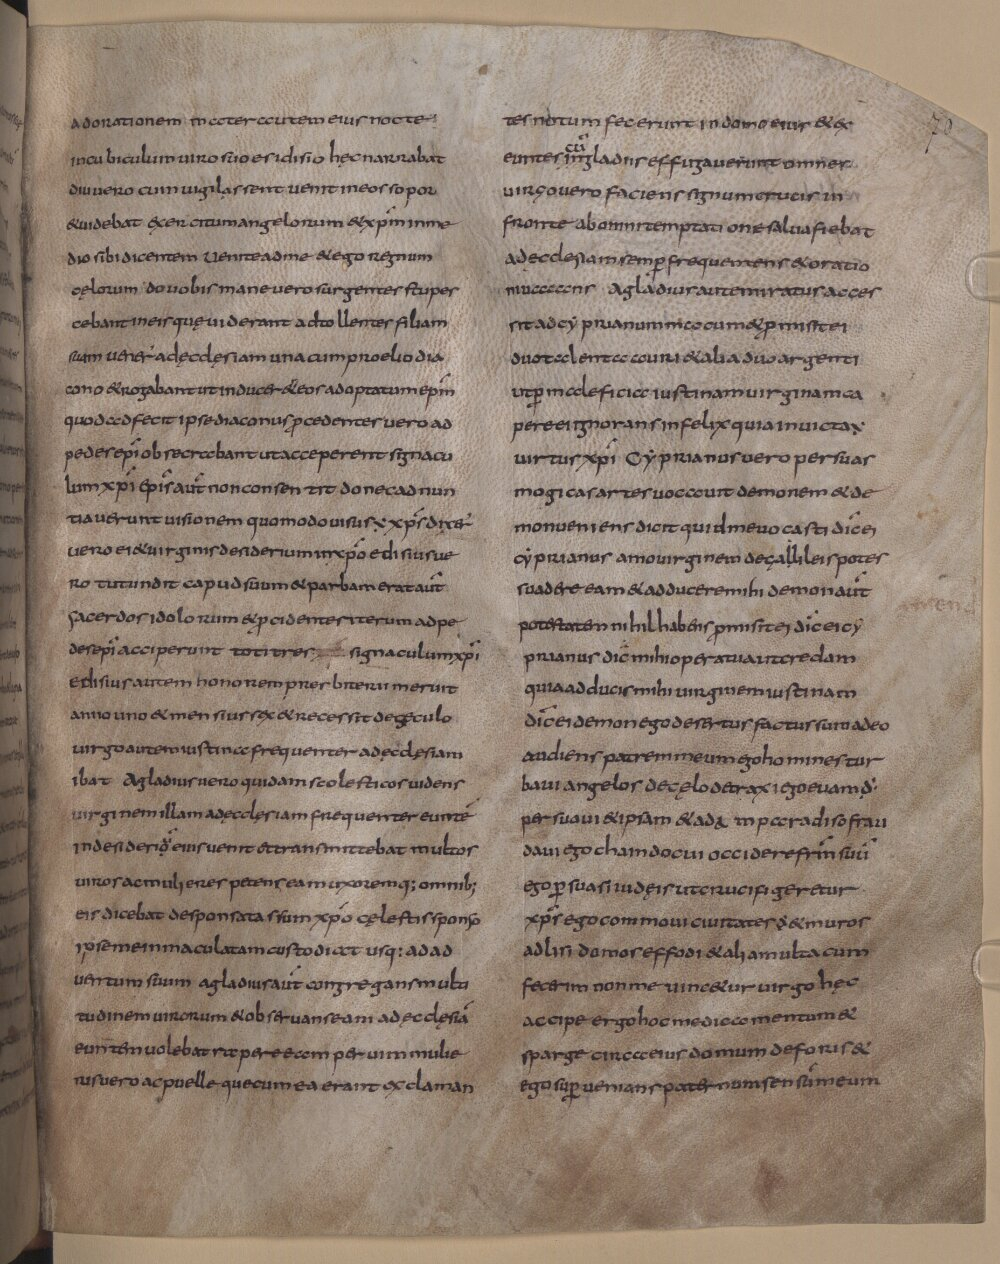 adorationem mater autem eius nocte
in cubiculum viro suo esidisio hęc narrabat
diu vero cum vigilassent venit in eos sopor
& videbat exercitum angelorum & xp̄m in me
dio sibi dicentem Venite ad me & ego regnum
cęlorum do vobis mane vero surgentes stupes
cebant in eis quę viderant adtollentes filiam
suam vener̄ ad ęcclęsiam una cum proelio dia
cono & rogabant ut induceret eos adoptatum ep̄m
quod & fecit ipse diaconus p̄cedentes vero ad
pedes ep̄i obsecrabant ut acceperent signacu
lum xp̄i Ep̄is aūt non consentit donec ad nun
tiaverunt visionem quomodo visus xp̄s dixer̄
vero ei & virginis desiderium in xp̄o edisius ve
ro tutundit capud suum & barbam erat aūt
sacerdos idolorum & p̄cidentes iterum ad pe
des ep̄i acciperunt toti tres signaculum xp̄i
Edisius autem honorem presbiterii meruit
anno uno & mensius sex & recessit de sęculo
virgo autem iustina frequenter ad ęcclęsiam
ibat Agladius vero quidam scolesticos videns
virginem illam ad ęcclęsiam frequenter eunte
in desiderio eius venit & transmittebat multos
viros ac mulieres petens eam uxorem q; omnib;
eis dicebat desponsata sum xp̄o cęlesti sponso
ipse me inmaculatam custodiat usq; ad ad
ventum suum agladius aūt congregans multi
tudinem virorum & observans eam ad ęcclęsiā
euntem volebat rapere eam per vim mulie
ris vero ac puelle que cum ea erant exclaman
tes notum fecerunt in domo eius & ex
euntes cū gladiis effugaverunt omnes
virgo vero faciens signum crucis in
fronte ab omni temptatione salva fiebat
ad ęcclęsiam semp frequentens & oratio
Agladius autem iratus acces
sit ad cyprianum macum & p̄misit ei
duo talenta auri & alia duo argenti
ut p maleficia iustinam virginam ca
pere ei ignorans infelix quia invicta
virtus xp̄i Cyprianus vero per suas
mogicas artes vocavit demonem & de
mon veniens dicit quid me vocasti dic̄ ei
cyprianus amo virginem de gallileis potes
suadere eam & adducere mihi demon aūt
potestatem nihil habens p̄misit ei dic̄ ei cy
prianus dic̄ mihi opera tua ut credam
quia adducis mihi virginem iustinam
dic̄ ei demon ego desertus factus sum a deo
audiens patrem meum ego homines tur
bavi angelos de cęlo detraxi ego evam
persuavi & ipsam & ade in paradiso frau
davi ego chain docui occidere frm suū
ego p suasi iudęis ut crucifigeretur
xp̄s ego commovi civitates & muros
adlisi domos effodi & alia multa cum
fecerim non me vincetur virgo hęc
accipe ergo hoc medicamentum &
sparge circa eius domum deforis &
ego supveniens paternum sensū meum
70